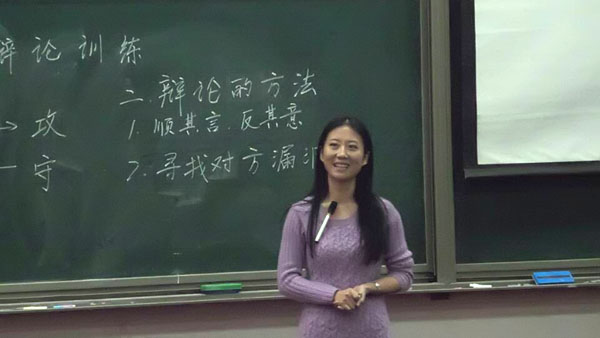 辩论训练
二.辩论的方法
→攻
1.顺其言.反其意
守
2.寻找对方漏